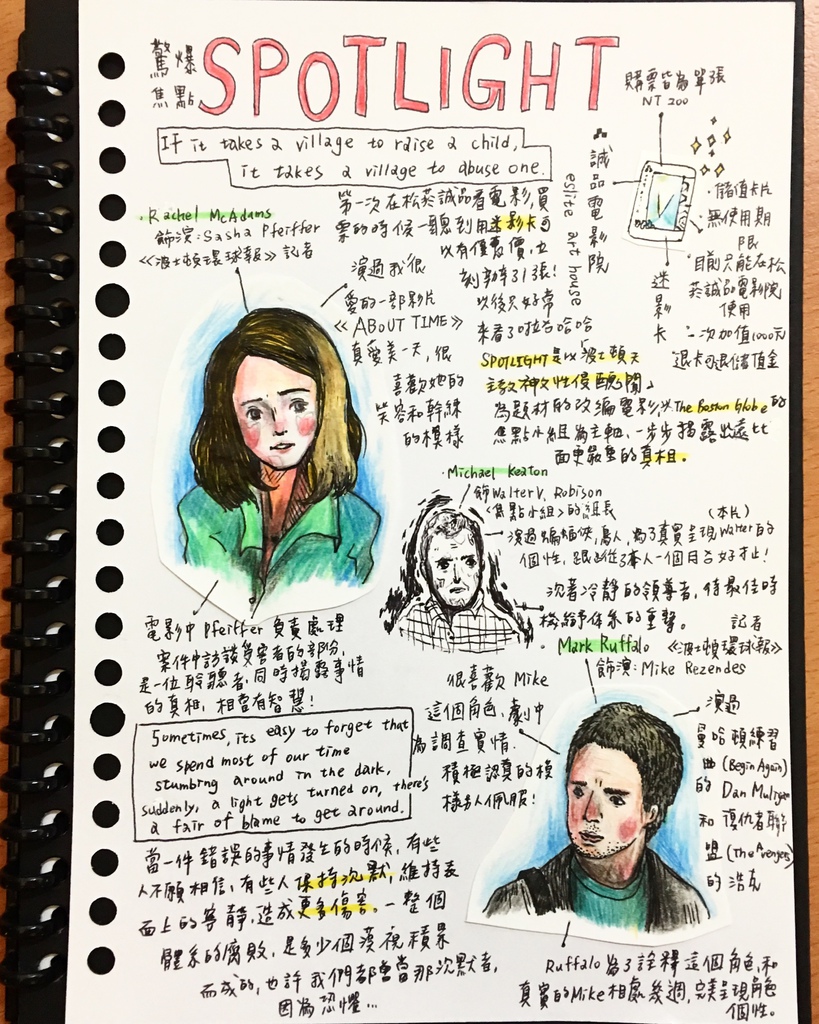 驚爆
焦點
SPOTLIGHT
購票皆為單張
NT 200
IF it takes a village to raise a child,
it takes a village to abuse one.
誠品電影院
eslite art house
迷影卡
・儲值卡片
・無使用期
限
・目前只能在松
菸誠品電影院
使用
・一次加值1000元
退卡可退儲值金
第一次在松菸誠品看電影,買
票的時候一聽到用迷影卡可
以有優惠價,立
刻辦了1張!
以後只好常
來看了啦哈哈哈
・Rachel McAdams
飾演:Sasha Pfeiffer
《波士頓環球報》記者
演過我很
愛的一部影片
《ABOUT TIME》
真愛美一天,很
喜歡她的
笑容和幹練
的模樣
SPOTLIGHT是以「波士頓天
主教神父性侵醜聞」
為題材的改編電影,以The Boston Globe的
焦點小組為主軸,一步步揭露出遠比
面更嚴重的真相。
・Michael Keaton
飾Walter V. Robison
《焦點小組》的組長
(本片)
演過蝙蝠俠,鳥人,為了真實呈現Walter的
個性,跟進從了本人一個月合好才止!
沉著冷靜的領導者,待最佳時
機給予体系的重擊。
電影中Pfeiffer負責處理
案件中訪談受害者的部份,
是一位聆聽者,同時揭露事情
的真相,相當有智慧!
・Mark Ruffalo
記者
《波士頓環球報》
飾演:Mike Rezendes
很喜歡Mike
這個角色,劇中
為調查實情
積極認真的模
樣另人佩服!
演過
曼哈頓練習
曲(Begin Again)
的Dan Muligan
和復仇者聯
盟(The Avengers)
的浩克
Sometimes, its easy to forget that
we spend most of our time
stumbing around in the dark,
suddenly, a light gets turned on, there's
a fair of blame to get around.
當一件錯誤的事情發生的時候,有些
人不願相信,有些人保持沉默,維持表
面上的寧靜,造成更多傷害。一整個
體系的腐敗,是多少個漠視積累
而成的,也許我們都會當那沉默者,
因為恐懼...
Ruffalo為了詮釋這個角色,和
真實的Mike相處幾週,完美呈現角色
個性。